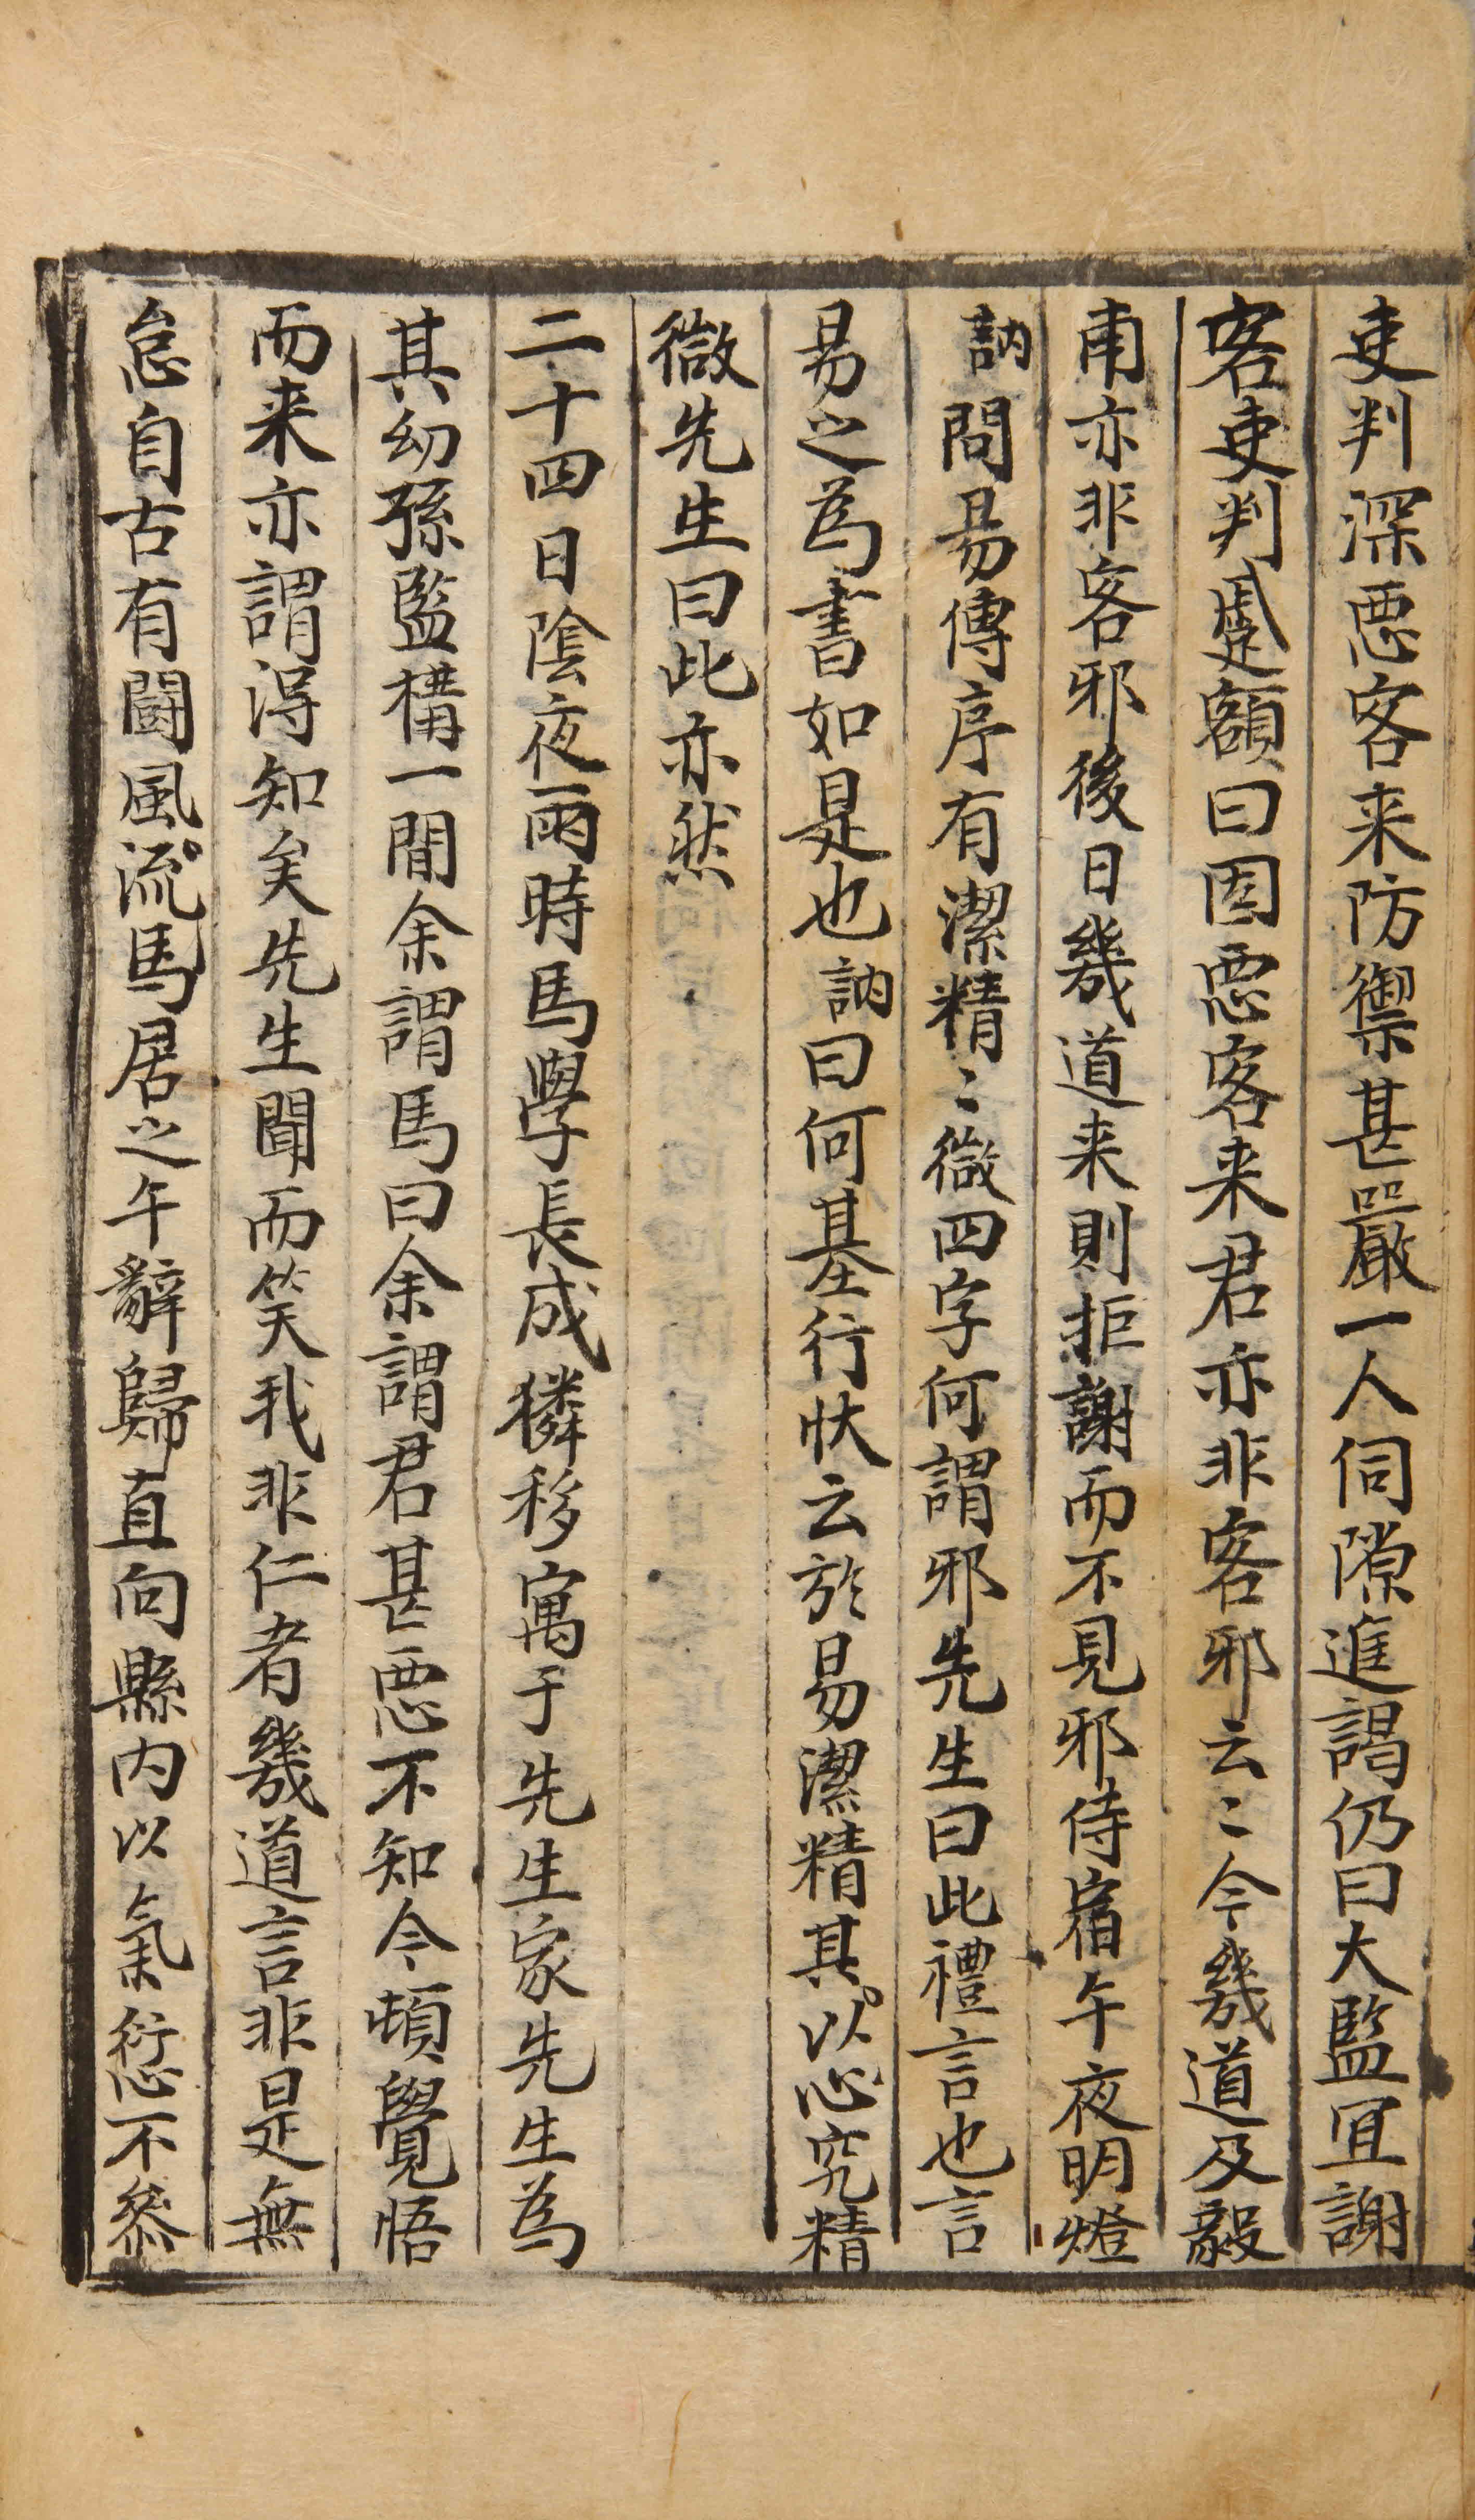 吏判深惡客来防禦甚嚴一人伺隙進謁仍曰大監冝謝
客吏判蹙額曰固惡客来君亦非客邪云〻今幾道及毅
甫亦非客邪後日幾道来則拒謝而不見邪侍宿午夜明燈
訥問易傳序有潔精〻微四字何謂邪先生曰此禮言也言
易之為書如是也訥曰何基行状云於易潔精其以心究精
微先生曰此亦然
二十四日陰夜雨時馬學長成獜移寓于先生家先生為
其幼孫監構一間余謂馬曰余謂君甚惡不知今頓覺悟
而来亦謂淂知矣先生聞而笑我非仁者幾道言非是無
怠自古有闘風流馬居之午辭歸直向縣内以氣愆不叅